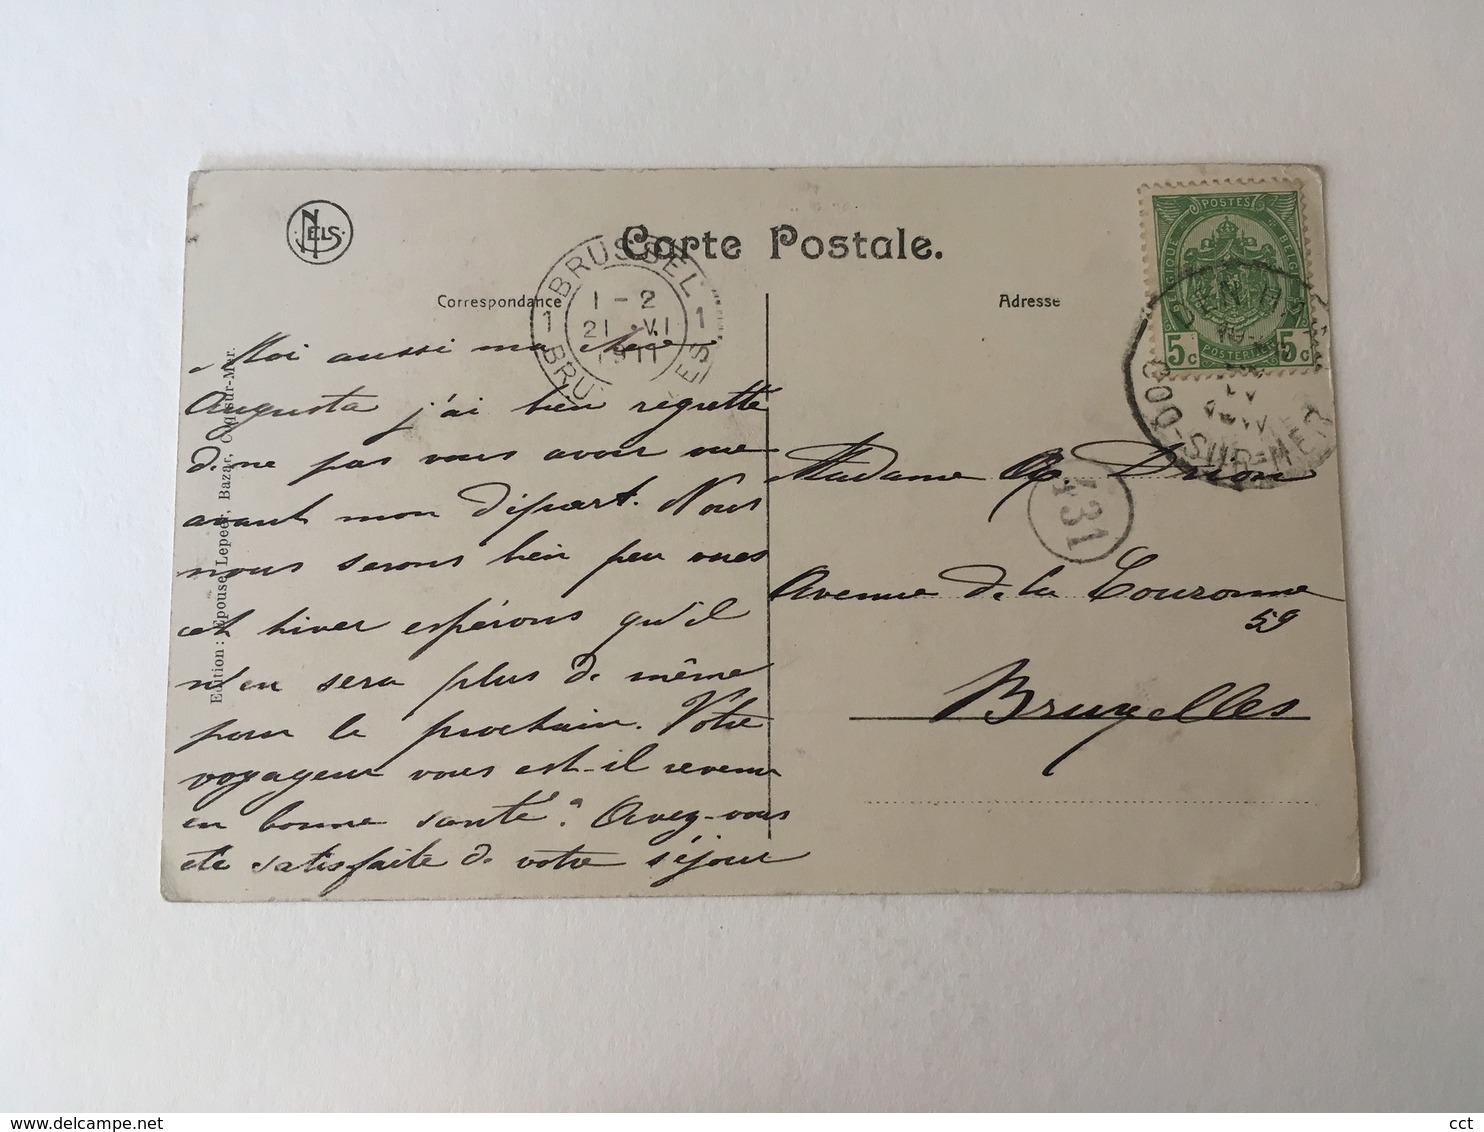 NELS
Carte Postale.
Correspondance
Adresse
BRUSSEL
1 1
1-2
21 VI
1911
BRU ES
POSTES
BELGIQUE BELGIE
5c POSTERIJEN 5c
COQ-SUR-MER
431
Edition: Epouse Lepeer, Bazar, Coq-sur-Mer.
Moi aussi ma chère
Augusta j'ai bien regretté
de ne pas vous avoir vue
avant mon départ. Nous
nous serons bien peu vues
cet hiver espérons qu'il
n'en sera plus de même
pour le prochain. Votre
voyageur vous est-il revenu
en bonne santé? Avez-vous
été satisfaite de votre séjour
Madame Drion
Avenue de la Couronne
59
Bruxelles
cct